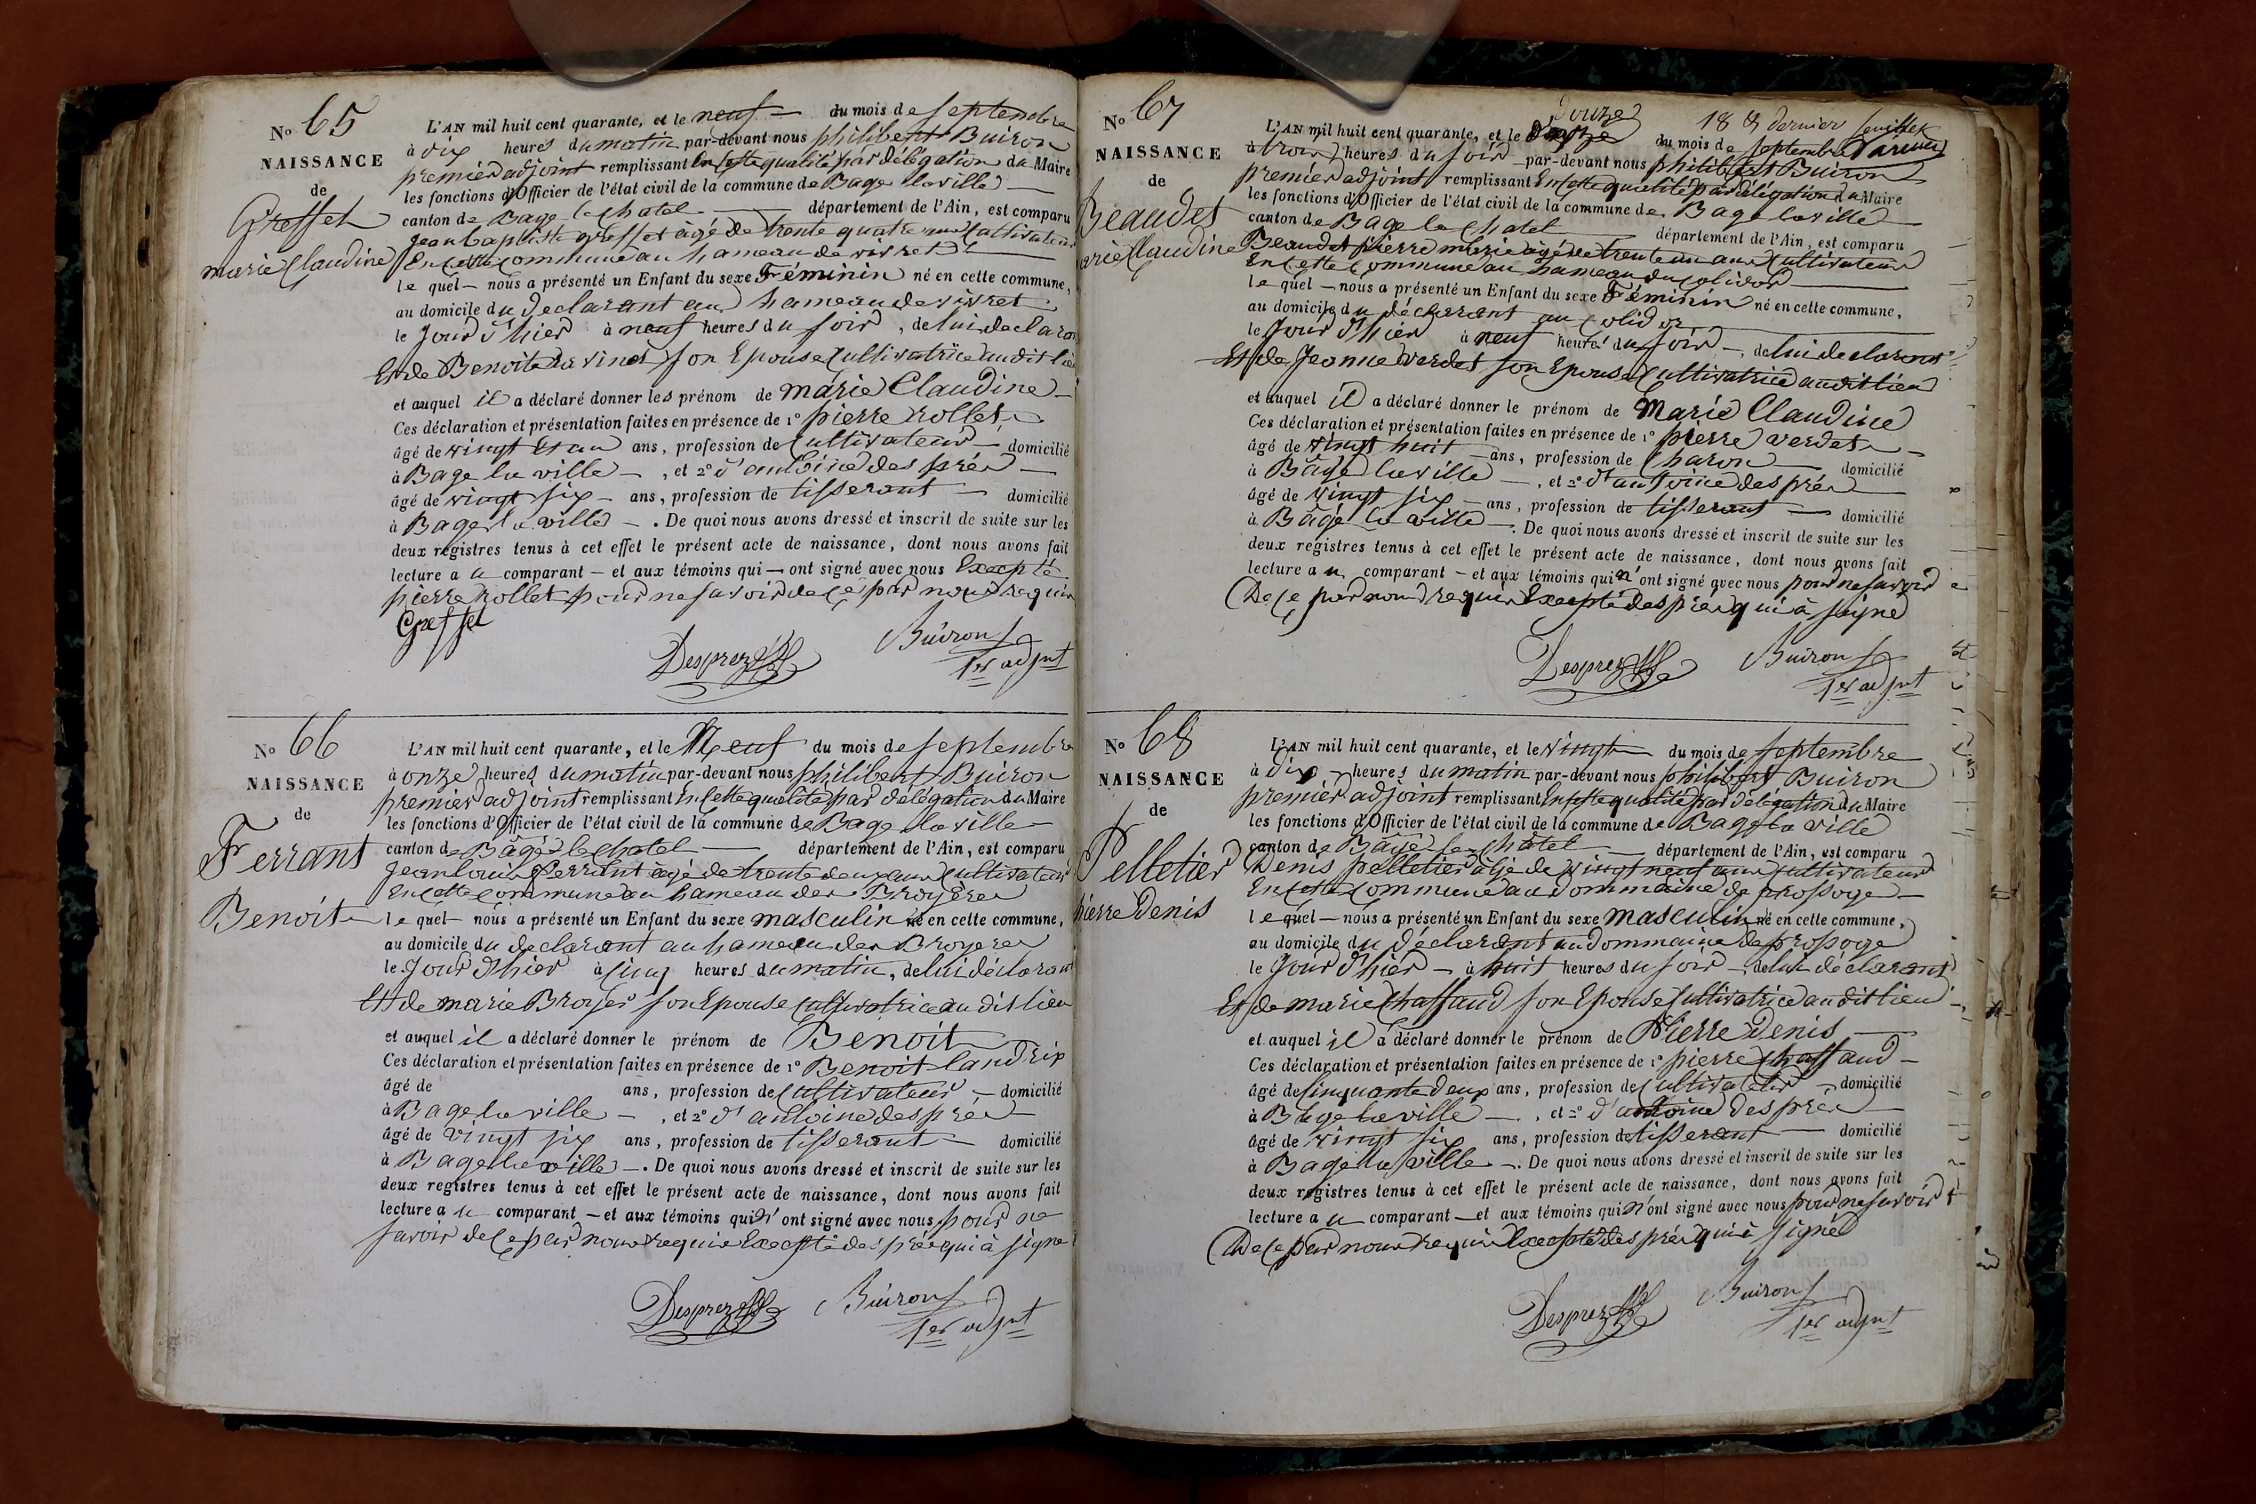 No 65
NAISSANCE
de
Greffet
marie Claudine
L'AN mil huit cent quarante, et le neuf du mois de septembre
à dix heures du matin par-devant nous philibert Buiron
premier adjoint remplissant En cette qualité par délégation du Maire
les fonctions d'Officier de l'état civil de la commune de Bage la ville
canton de Bage le chatel département de l'Ain, est comparu
jean baptiste greffet agé de trente quatre ans Cultivateur
En cette commune au hameau de vivret
lequel nous a présenté un Enfant du sexe Féminin né en cette commune,
au domicile du declarant au hameau de vivret
le Jour d'hier à neuf heures du soir, de lui declarant
Et de Benoite son Epouse Cultivatrice au dit lieu
et auquel il a déclaré donner les prénom de marie Claudine
Ces déclaration et présentation faites en présence de 1° pierre rollet
âgé de vingt Et un ans, profession de Cultivateur domicilié
à Bage la ville, et 2° d'antoine des prés
âgé de vingt six ans, profession de tisserant domicilié
à Bage la ville. De quoi nous avons dressé et inscrit de suite sur les
deux registres tenus à cet effet le présent acte de naissance, dont nous avons fait
lecture au comparant et aux témoins qui ont signé avec nous Excepté
pierre rollet pour ne savoir de ce par nous requis
Greffet
Desprez Buiron
1er adjnt
No 66
NAISSANCE
de
Ferrant
Benoit
L'AN mil huit cent quarante, et le Neuf du mois de septembre
à onze heures du matin par-devant nous philibert Buiron
premier adjoint remplissant En cette qualité par délégation du Maire
les fonctions d'Officier de l'état civil de la commune de Bage la ville
canton de Bâgé le chatel département de l'Ain, est comparu
jean louis ferrant agé de trente deux ans Cultivateur
En cette commune au hameau des Broyeres
lequel nous a présenté un Enfant du sexe masculin né en cette commune,
au domicile du declarant au hameau des Broyeres
le Jour d'hier à cinq heures du matin, de lui déclarant
Et de marie Broyer son Epouse Cultivatrice au dit lieu
et auquel il a déclaré donner le prénom de Benoit
Ces déclaration et présentation faites en présence de 1° Benoit landrix
âgé de ans, profession de Cultivateur domicilié
à Bage la ville, et 2° d'antoine des prés
âgé de vingt six ans, profession de tisserant domicilié
à Bage la ville. De quoi nous avons dressé et inscrit de suite sur les
deux registres tenus à cet effet le présent acte de naissance, dont nous avons fait
lecture au comparant et aux témoins qui n'ont signé avec nous pour ne
savoir de ce par nous requis Excepté des prés qui à signé
Desprez Buiron
1er adjnt
No 67
NAISSANCE
de
Beaudet
arie Claudine
douze 18 dernier
L'AN mil huit cent quarante, et le du mois de septembre
à trois heures du soir par-devant nous philibert Buiron
premier adjoint remplissant En cette qualité par délégation du Maire
les fonctions d'Officier de l'état civil de la commune de Bage la ville
canton de Bage le chatel département de l'Ain, est comparu
Beaudet pierre marie agé de trente un ans Cultivateur
En cette Commune au hameau du colidor
lequel nous a présenté un Enfant du sexe Féminin né en cette commune,
au domicile du déclarant au colidor
le Jour d'hier à neuf heures du soir, de lui declarant
Et de Jeanne verdet son Epouse Cultivatrice au dit lieu
et auquel il a déclaré donner le prénom de Marie Claudine
Ces déclaration et présentation faites en présence de 1° pierre verdet
âgé de vingt huit ans, profession de Charon domicilié
à Bâgé la ville, et 2° d'antoine des prés
âgé de vingt six ans, profession de tisserant domicilié
à Bâgé la ville. De quoi nous avons dressé et inscrit de suite sur les
deux registres tenus à cet effet le présent acte de naissance, dont nous avons fait
lecture au comparant et aux témoins qui n'ont signé avec nous pour ne savoir
De ce par nous requis Excepté des prés qui à signé
Desprez Buiron
1er adjnt
No 68
NAISSANCE
de
Pelletier
pierre Denis
L'AN mil huit cent quarante, et le vingt du mois de septembre
à dix heures du matin par-devant nous philibert Buiron
premier adjoint remplissant En cette qualité par délégation du Maire
les fonctions d'Officier de l'état civil de la commune de Bage la ville
canton de Bâgé le chatel département de l'Ain, est comparu
Denis pelletier âgé de vingt neuf ans Cultivateur
En cette Commune au dommaine de
lequel nous a présenté un Enfant du sexe masculin né en cette commune,
au domicile du déclarant au dommaine de
le Jour d'hier à huit heures du soir, de lui déclarant
Et de marie Chaffaud son Epouse Cultivatrice au dit lieu
et auquel il a déclaré donner le prénom de Pierre Denis
Ces déclaration et présentation faites en présence de 1° pierre Chaffaud
âgé de cinquante deux ans, profession de Cultivateur domicilié
à Bage la ville, et 2° d'antoine des prés
âgé de vingt six ans, profession de tisserant domicilié
à Bage la ville. De quoi nous avons dressé et inscrit de suite sur les
deux registres tenus à cet effet le présent acte de naissance, dont nous avons fait
lecture au comparant et aux témoins qui n'ont signé avec nous pour ne savoir
De ce par nous requis Excepté des prés qui à signé
Desprez Buiron
1er adjnt